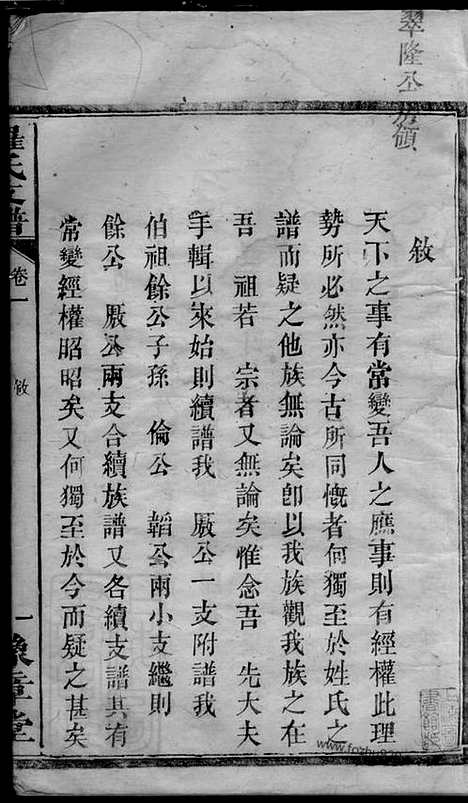 翠隆公
敘
天下之事有常變吾人之應事則有經權此理
勢所必然亦今古所同慨者何獨至於姓氏之
譜而疑之他族無論矣卽以我族觀我族之在
吾 祖若 宗者又無論矣惟念吾 先大夫
手輯以來始則續譜我 厫公一支附譜我
伯祖餘公子孫 倫公 韜公兩小支繼則
餘公 厫公兩支合續族譜又各續支譜其有
常變經權昭昭矣又何獨至於今而疑之甚矣
羅氏支譜
卷一
敘
一
豫章堂